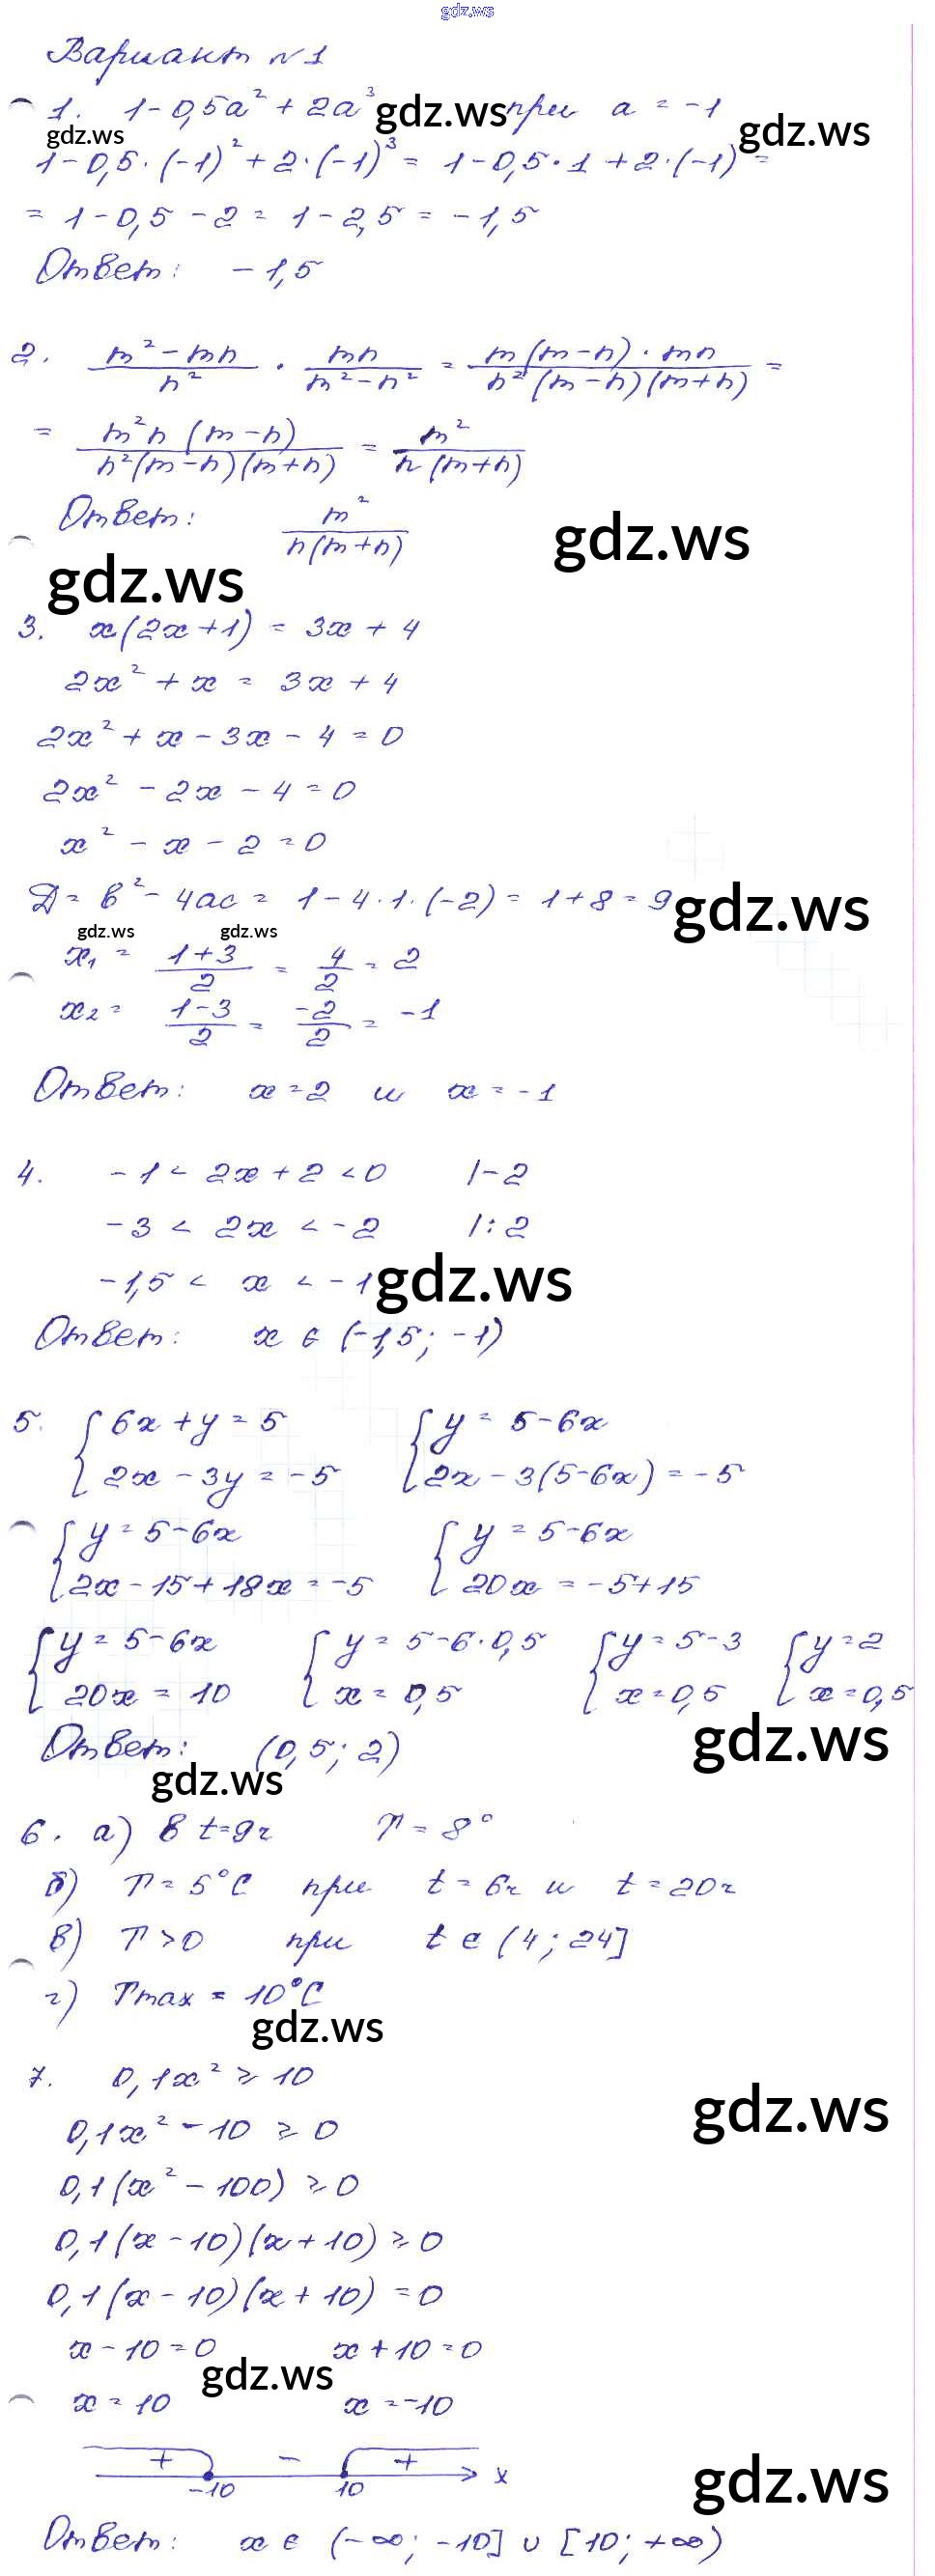 gdz.ws
Вариант №1
1. 1-0,5a² + 2a³ gdz.ws при a = -1
gdz.ws gdz.ws
1-0,5·(-1)²+2·(-1)³= 1-0,5·1+2·(-1) =
= 1-0,5 -2 = 1-2,5 = -1,5
Ответ: -1,5
2. (m²-mn)/n² · mn/(m²-n²) = (m(m-n)·mn)/(n²(m-n)(m+n)) =
= (m²n(m-n))/(n²(m-n)(m+n)) = m²/(n(m+n))
Ответ: m²/(n(m+n))
gdz.ws
gdz.ws
3. x(2x+1) = 3x+4
2x²+x = 3x+4
2x²+x-3x-4=0
2x²-2x-4=0
x²-x-2=0
Д= b²-4ac= 1-4·1·(-2)= 1+8=9
gdz.ws
gdz.ws gdz.ws
x₁ = (1+3)/2 = 4/2 = 2
x₂ = (1-3)/2 = -2/2 = -1
Ответ: x=2 и x=-1
4. -1< 2x+2<0 |-2
-3 < 2x < -2 |:2
-1,5 < x < -1
gdz.ws
Ответ: x ∈ (-1,5; -1)
5. { 6x+y=5 { y= 5-6x
{ 2x-3y=-5 { 2x-3(5-6x)=-5
{ y=5-6x { y=5-6x
{ 2x-15+18x=-5 { 20x=-5+15
{ y=5-6x { y=5-6·0,5 { y=5-3 { y=2
{ 20x=10 { x=0,5 { x=0,5 { x=0,5
gdz.ws
Ответ: (0,5; 2)
gdz.ws
6. а) В t=9г T=8°
б) T=5°C при t=6г и t=20г
в) T>0 при t∈(4;24]
г) Tmax = 10°C
gdz.ws
7. 0,1x² ⩾ 10
gdz.ws
0,1x²-10 ⩾ 0
0,1(x²-100) ⩾ 0
0,1(x-10)(x+10) ⩾ 0
0,1(x-10)(x+10) =0
x-10=0 x+10=0
gdz.ws
x=10 x=-10
+ - +
-10 10 x
gdz.ws
Ответ: x∈(-∞; -10] ∪ [10; +∞)